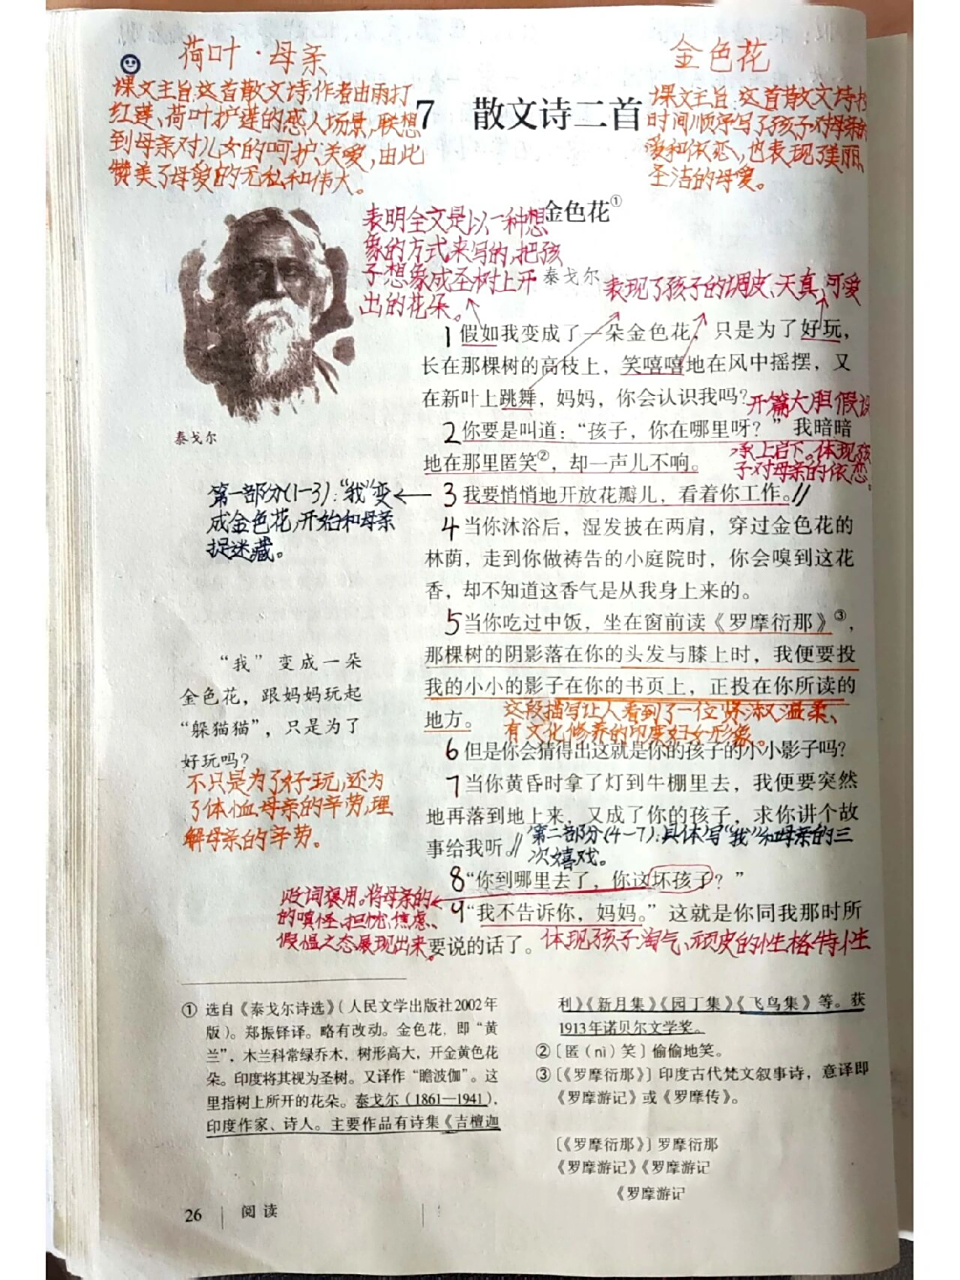 荷叶·母亲
课文主旨:这首散文诗,作者由雨打
红莲、荷叶护莲的感人场景,联想
到母亲对儿女的呵护、关爱,由此
赞美了母爱的无私和伟大。
金色花
课文主旨:这首散文诗按
时间顺序写了孩子对母亲的
爱和依恋,也表现了美丽、
圣洁的母爱。
7 散文诗二首
金色花①
泰戈尔
表明全文是以一种想
象的方式来写的,把孩
子想象成圣树上开
出的花朵。
表现了孩子的调皮、天真、可爱
泰戈尔
1 假如我变成了一朵金色花,只是为了好玩,
长在那棵树的高枝上,笑嘻嘻地在风中摇摆,又
在新叶上跳舞,妈妈,你会认识我吗?
开篇大胆假设
2 你要是叫道:“孩子,你在哪里呀?”我暗暗
地在那里匿笑②,却一声儿不响。
承上启下。体现孩
子对母亲的依恋。
3 我要悄悄地开放花瓣儿,看着你工作。//
第一部分(1—3):“我”变
成金色花,开始和母亲
捉迷藏。
4 当你沐浴后,湿发披在两肩,穿过金色花的
林荫,走到你做祷告的小庭院时,你会嗅到这花
香,却不知道这香气是从我身上来的。
5 当你吃过中饭,坐在窗前读《罗摩衍那》③,
那棵树的阴影落在你的头发与膝上时,我便要投
我的小小的影子在你的书页上,正投在你所读的
地方。
这段描写让人看到了一位贤淑、温柔、
有文化修养的印度妇女形象。
“我”变成一朵
金色花,跟妈妈玩起
“躲猫猫”,只是为了
好玩吗?
不只是为了好玩,还为
了体恤母亲的辛劳,理
解母亲的辛劳。
6 但是你会猜得出这就是你的孩子的小小影子吗?
7 当你黄昏时拿了灯到牛棚里去,我便要突然
地再落到地上来,又成了你的孩子,求你讲个故
事给我听。//
第二部分(4—7):具体写“我”和母亲的三
次嬉戏。
8 “你到哪里去了,你这坏孩子?”
贬词褒用。将母亲的
的嗔怪、担忧、焦虑、
假愠之态展现出来。
9 “我不告诉你,妈妈。”这就是你同我那时所
要说的话了。
体现孩子淘气、顽皮的性格特性
① 选自《泰戈尔诗选》(人民文学出版社2002年
版)。郑振铎译。略有改动。金色花,即“黄
兰”,木兰科常绿乔木,树形高大,开金黄色花
朵。印度将其视为圣树。又译作“瞻波伽”。这
里指树上所开的花朵。泰戈尔(1861—1941),
印度作家、诗人。主要作品有诗集《吉檀迦
利》《新月集》《园丁集》《飞鸟集》等。获
1913年诺贝尔文学奖。
② 〔匿(nì)笑〕偷偷地笑。
③ 〔《罗摩衍那》〕印度古代梵文叙事诗,意译即
《罗摩游记》或《罗摩传》。
〔《罗摩衍那》〕罗摩衍那
《罗摩游记》《罗摩游记
《罗摩游记
26 阅读